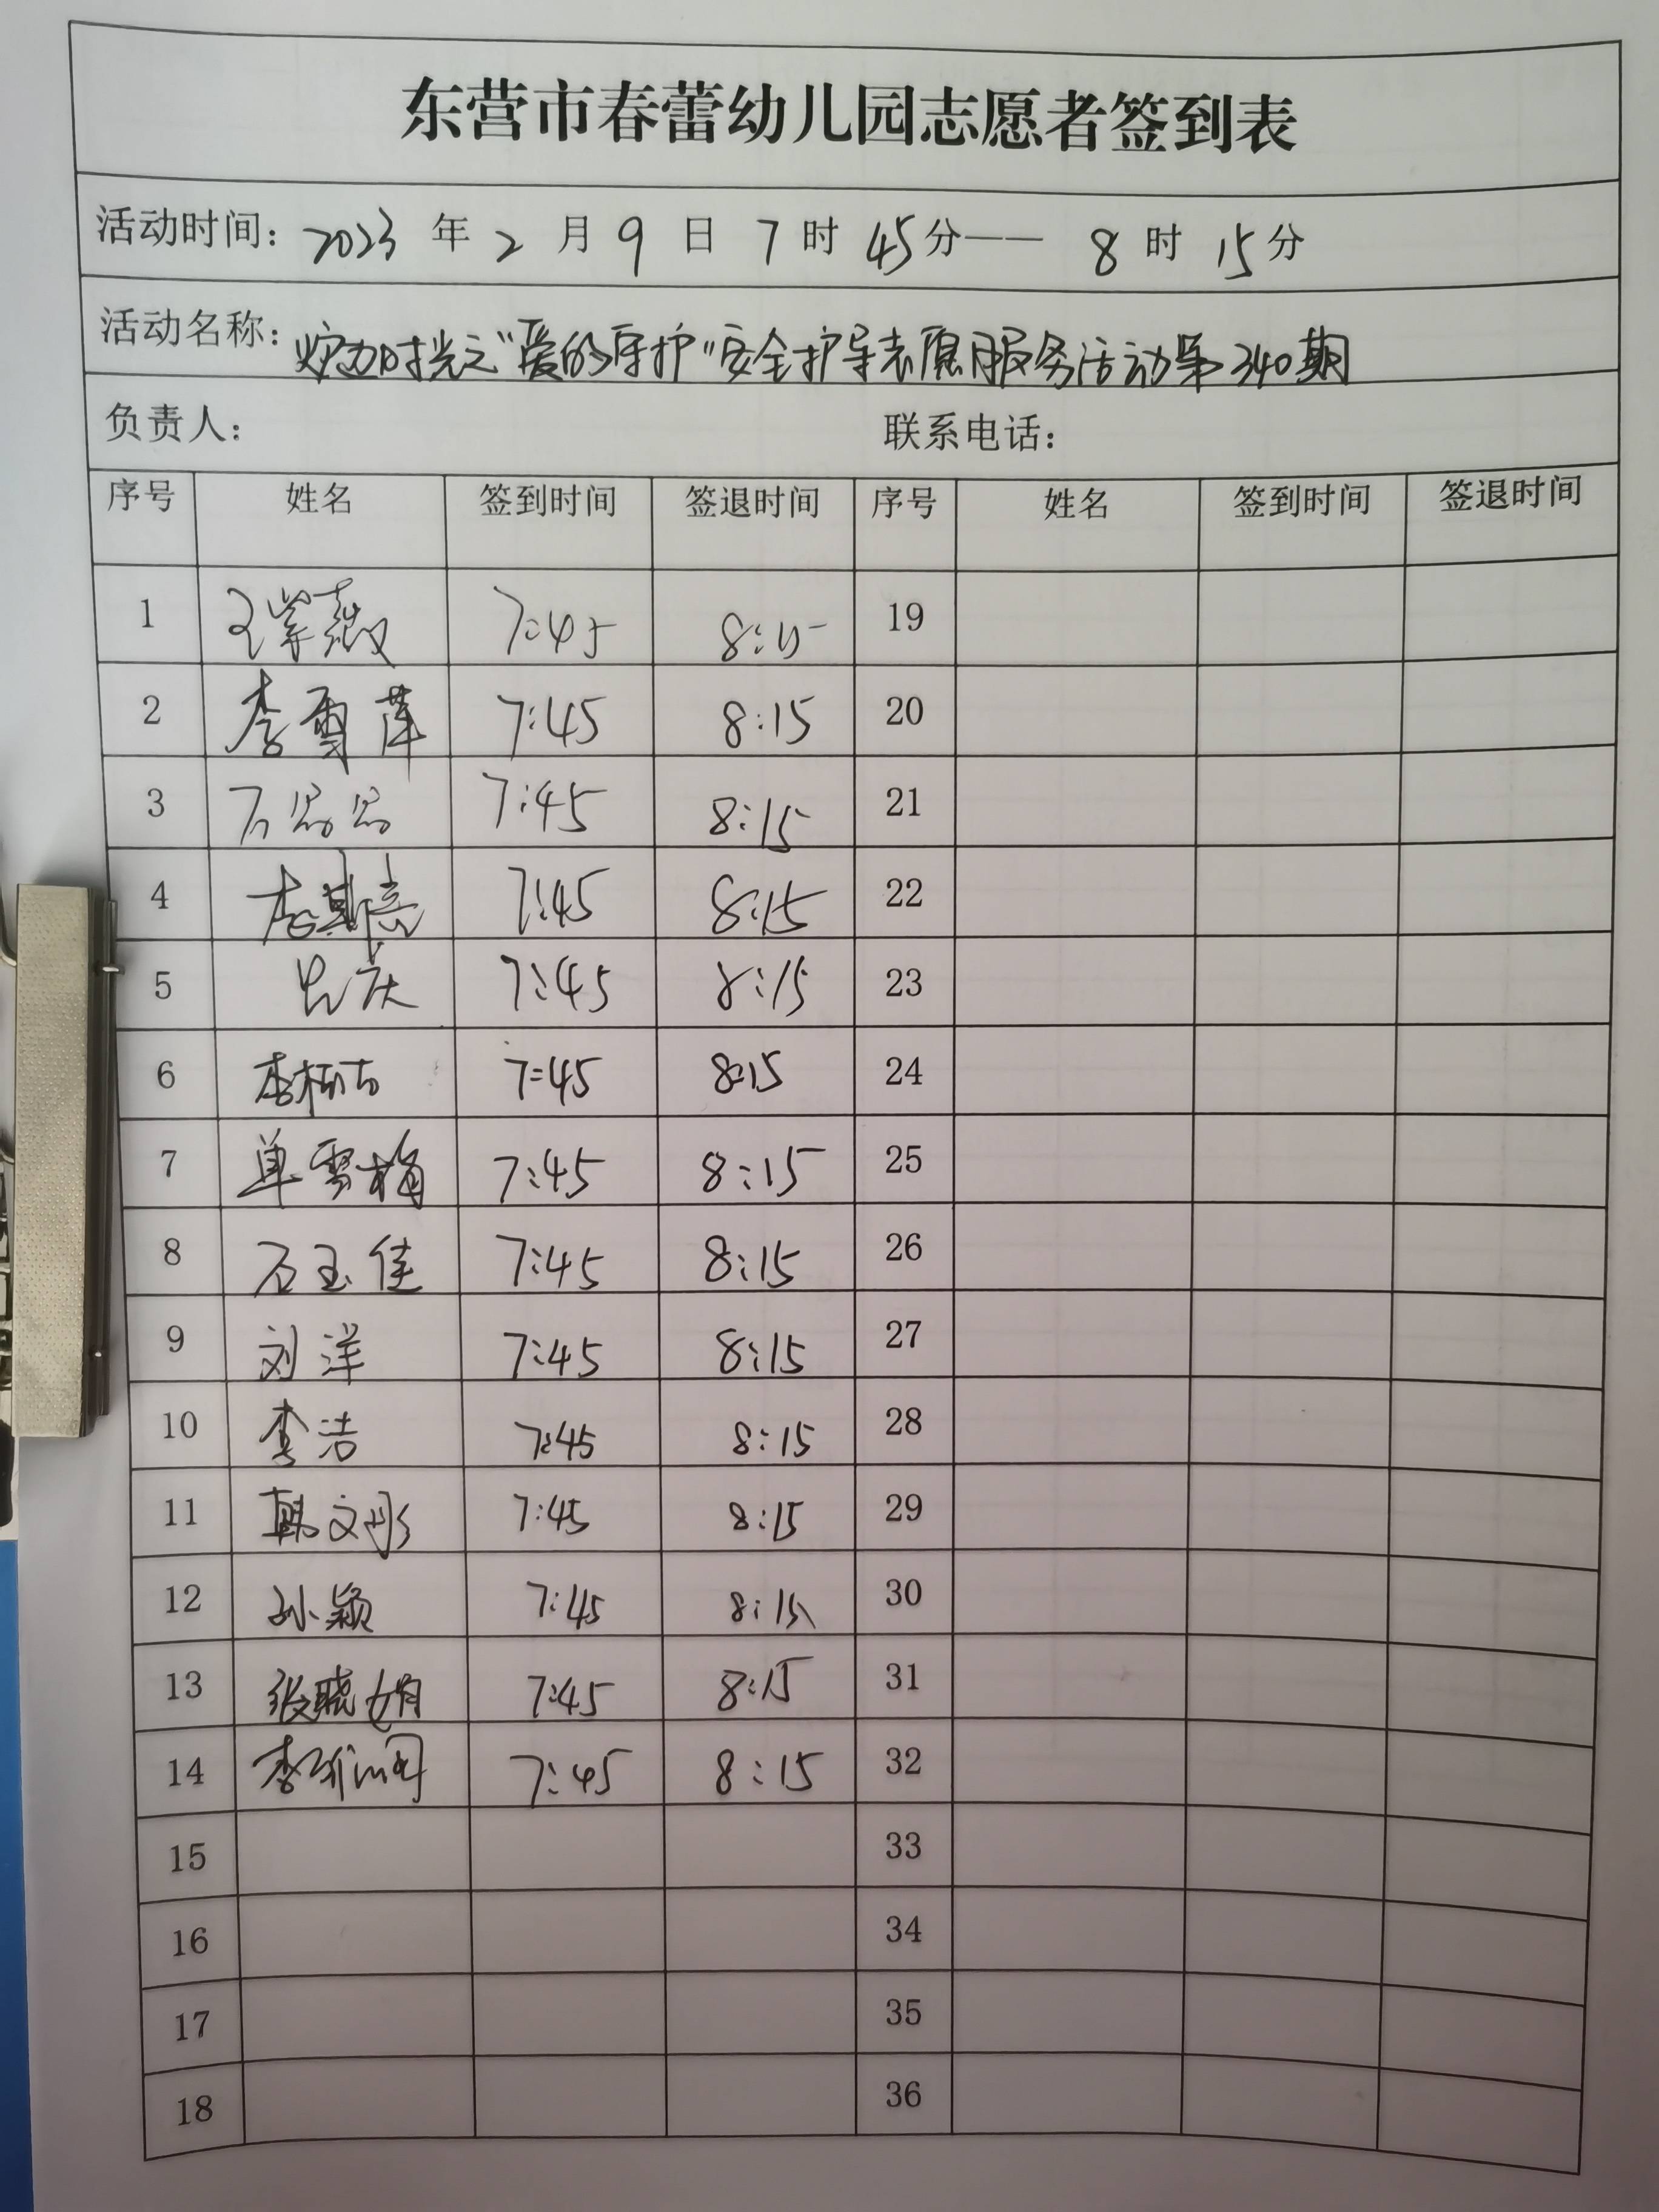 东营市春蕾幼儿园志愿者签到表
活动时间: 2023 年 2 月 9 日 7 时 45 分—— 8 时 15 分
活动名称: 炉边时光之"爱的守护"安全护导志愿服务活动第340期
负责人: 联系电话:
序号 姓名 签到时间 签退时间 序号 姓名 签到时间 签退时间
1 王紫薇 7:45 8:15 19
2 李雪萍 7:45 8:15 20
3 石思思 7:45 8:15 21
4 李 7:45 8:15 22
5 7:45 8:15 23
6 李 7:45 8:15 24
7 单雪梅 7:45 8:15 25
8 石玉佳 7:45 8:15 26
9 刘洋 7:45 8:15 27
10 李洁 7:45 8:15 28
11 韩文彤 7:45 8:15 29
12 孙颖 7:45 8:15 30
13 张晓娟 7:45 8:15 31
14 李 7:45 8:15 32
15 33
16 34
17 35
18 36